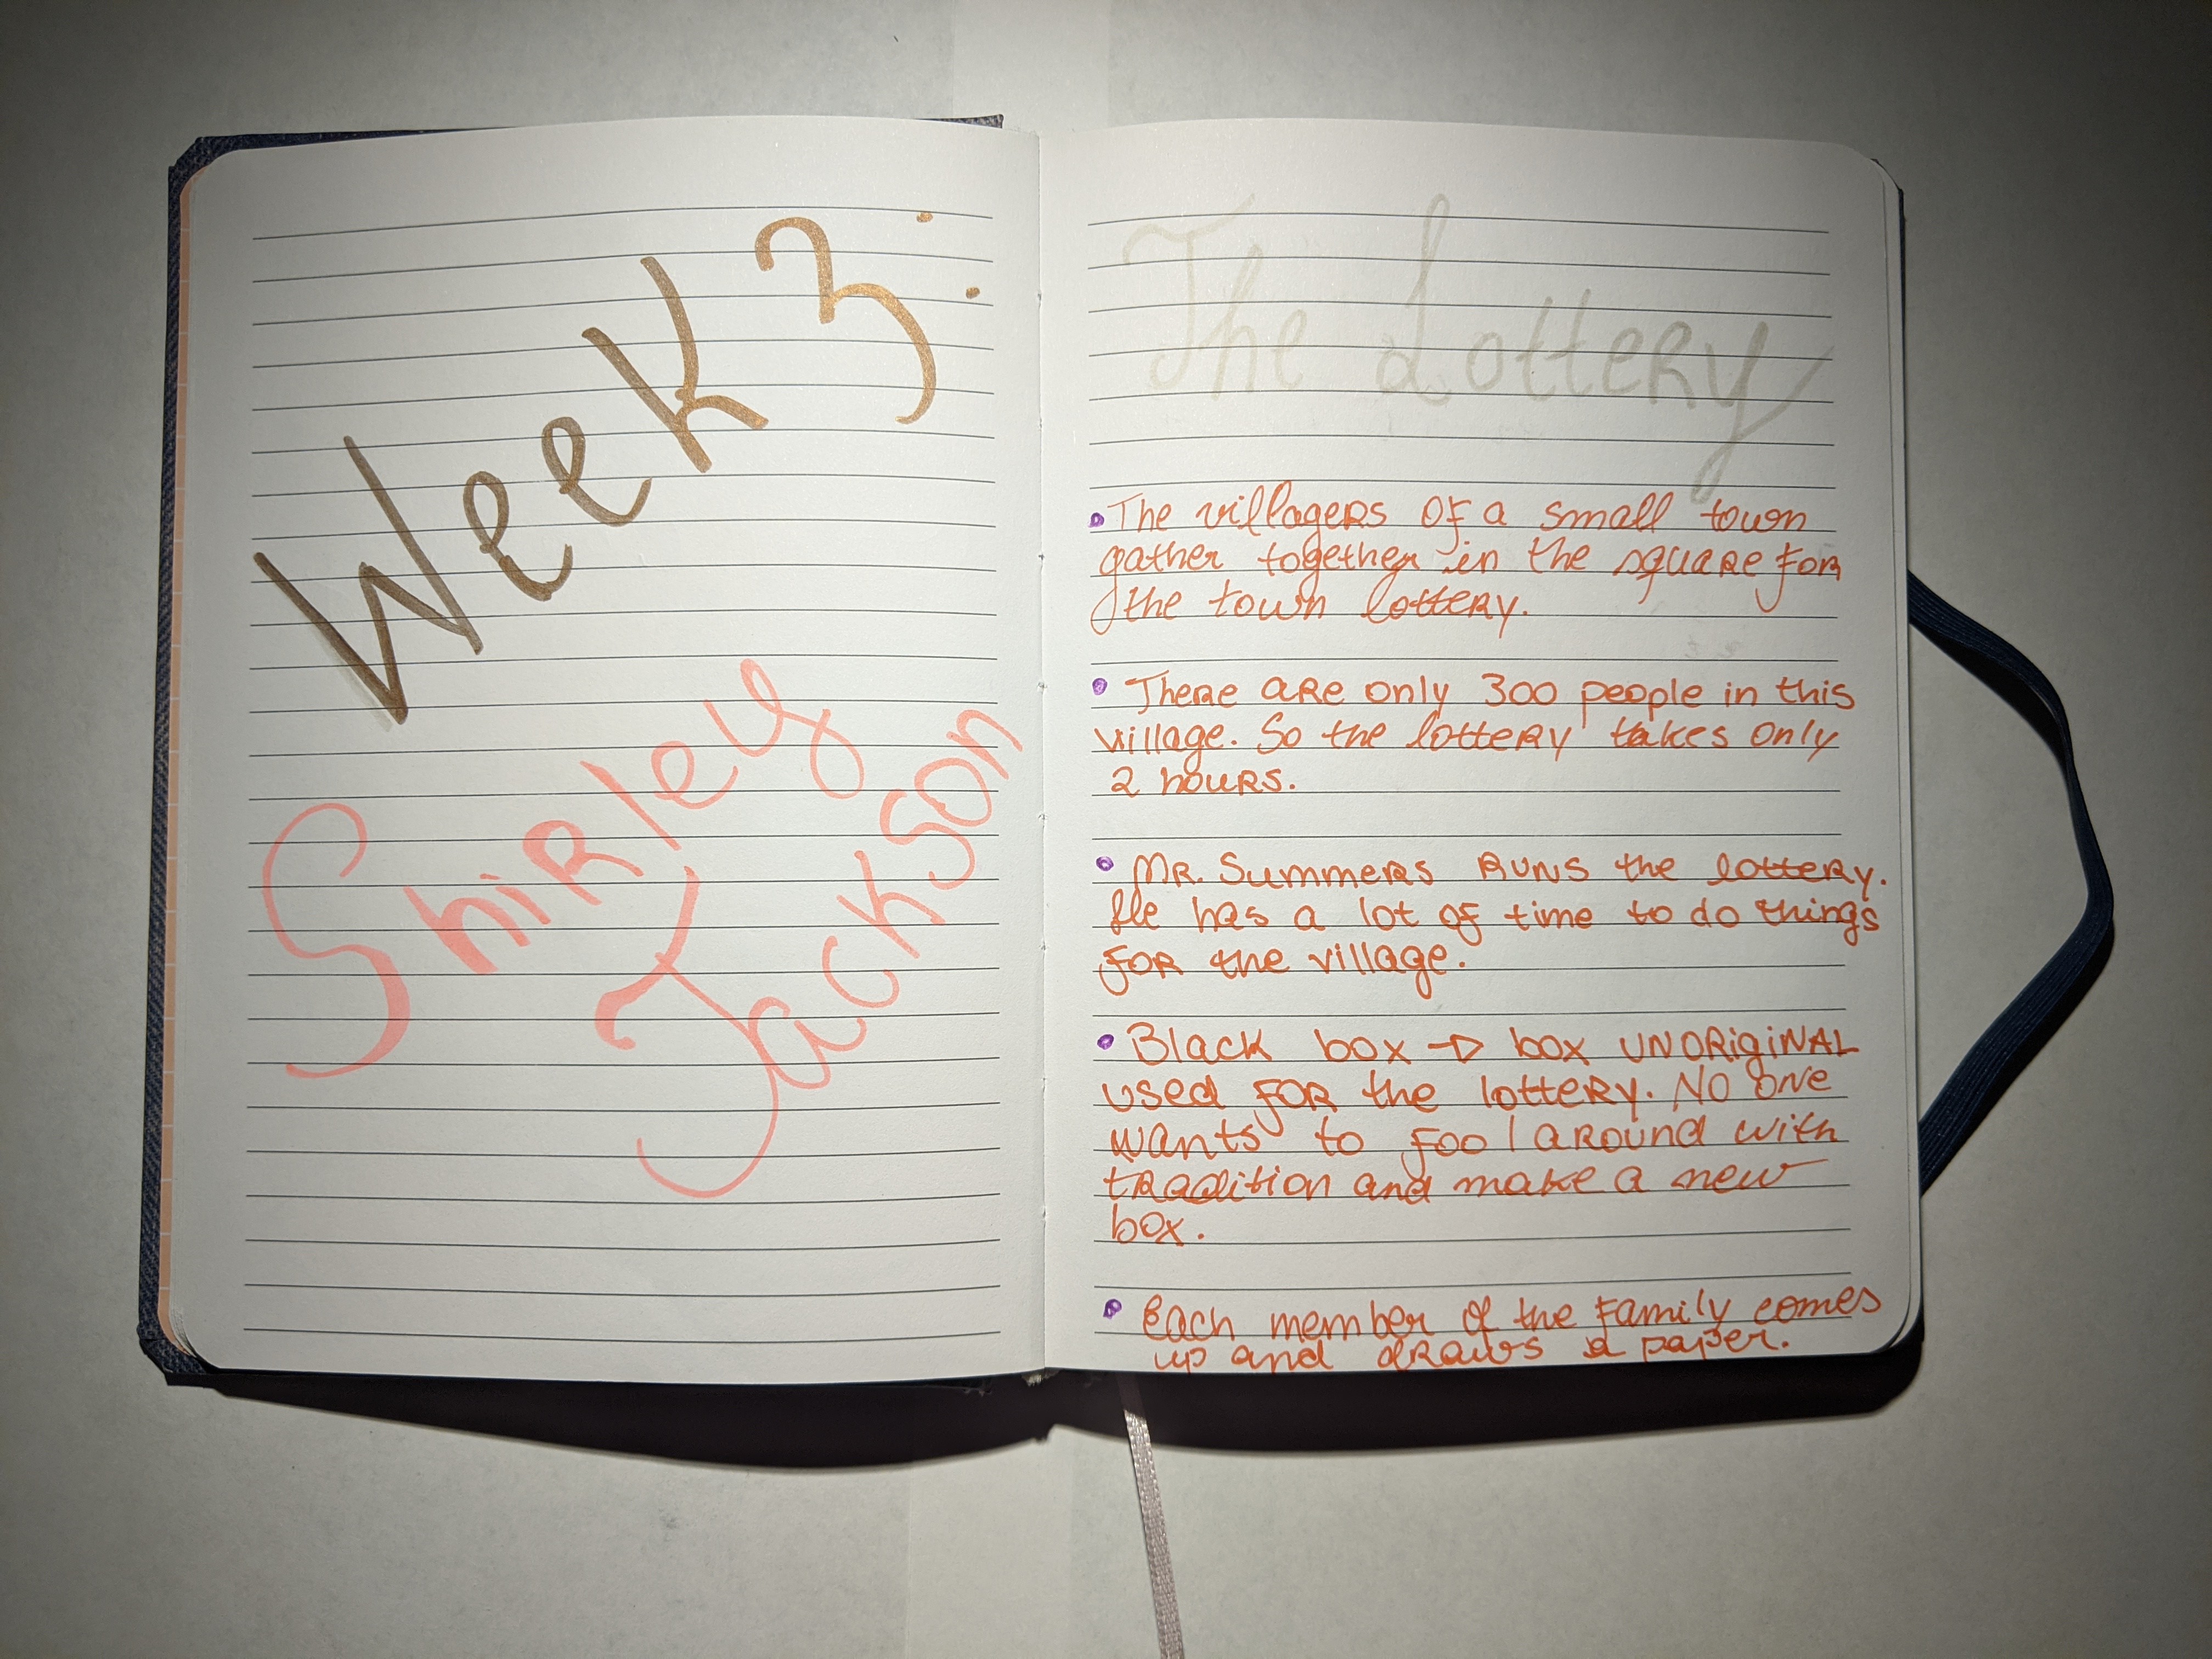 Week 3:
Shirley
Jackson
The Lottery
• The villagers of a small town
gather together in the square for
the town lottery.
• There are only 300 people in this
village. So the lottery takes only
2 hours.
• Mr. Summers runs the lottery.
He has a lot of time to do things
for the village.
• Black box → box UNORIGINAL
used for the lottery. No one
wants to fool around with
tradition and make a new
box.
• Each member of the family comes
up and draws a paper.